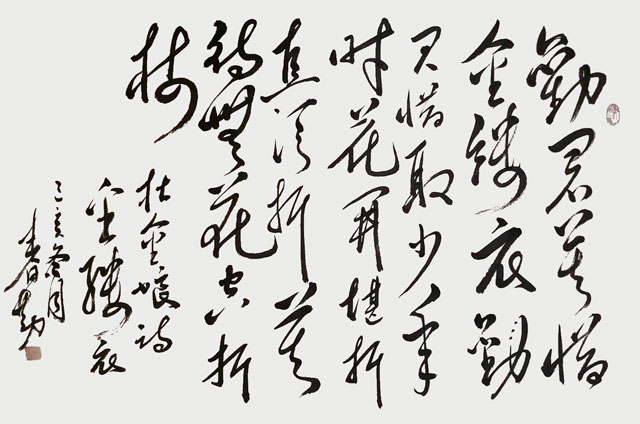 勸君莫惜
金縷衣勸
君惜取少年
時花開堪折
直須折莫
待無花空折
枝
杜秋娘詩
金縷衣
己亥冬月
春勁